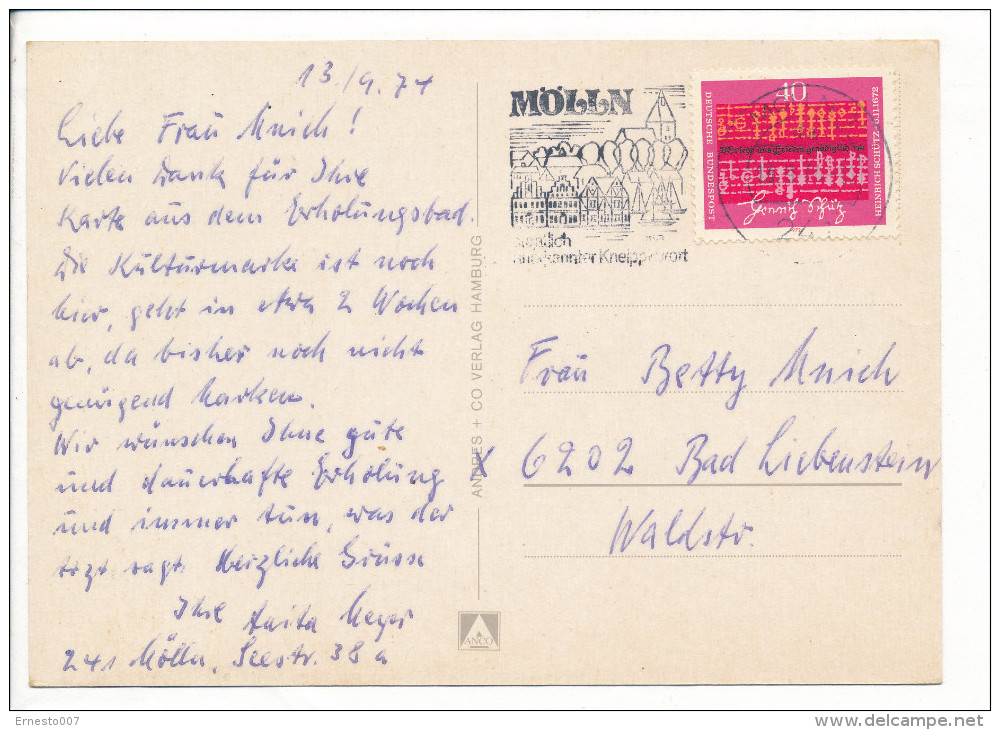 13./9.74
Liebe Frau Mnich!
Vielen Dank für Ihre
Karte aus dem Erholungsbad.
Die Kulturmarke ist noch
hier, geht in etwa 2 Wochen
ab, da bisher noch nicht
genügend Marken.
Wir wünschen Ihne gute
und dauerhafte Erholung
und immer tun, was der
Arzt sagt. Herzliche Grüsse
Ihre Anita Meyer
241 Mölln, Seestr. 38 a
ANDRES + CO VERLAG HAMBURG
ANCO
MÖLLN
Kneippkurort
40
DEUTSCHE BUNDESPOST
HEINRICH SCHÜTZ · 6.11.1672
Frau Betty Mnich
X 6202 Bad Liebenstein
Waldstr.
Ernesto007
delcampe.net